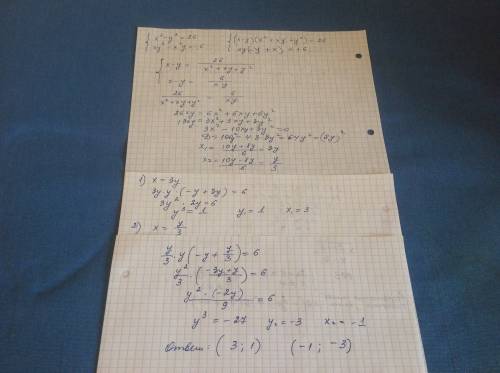 { x³ - y³ = 26    { (x-y)(x² + xy + y²) = 26
{ xy² - x²y = -6    { xy(-y + x) = +6
{ x-y = 26/(x² + xy + y²)
{ x-y = 6/(xy)
26/(x² + xy + y²) = 6/(xy)
26xy = 6x² + 6xy + 6y²
13xy = 3x² + 3xy + 3y²
3x² - 10xy + 3y² = 0
D = 100y² - 4·3·3y² = 64y² = (8y)²
x₁ = (10y + 8y)/6 = 3y
x₂ = (10y - 8y)/6 = y/3
1) x = 3y
3y·y·(-y + 3y) = 6
3y²·2y = 6
y³ = 1    y₁ = 1    x₁ = 3
2) x = y/3
y/3 · y(-y + y/3) = 6
y²/3 · (-3y+y)/3 = 6
y²·(-2y)/9 = 6
y³ = -27    y₂ = -3    x₂ = -1
Ответ: (3; 1)    (-1; -3)